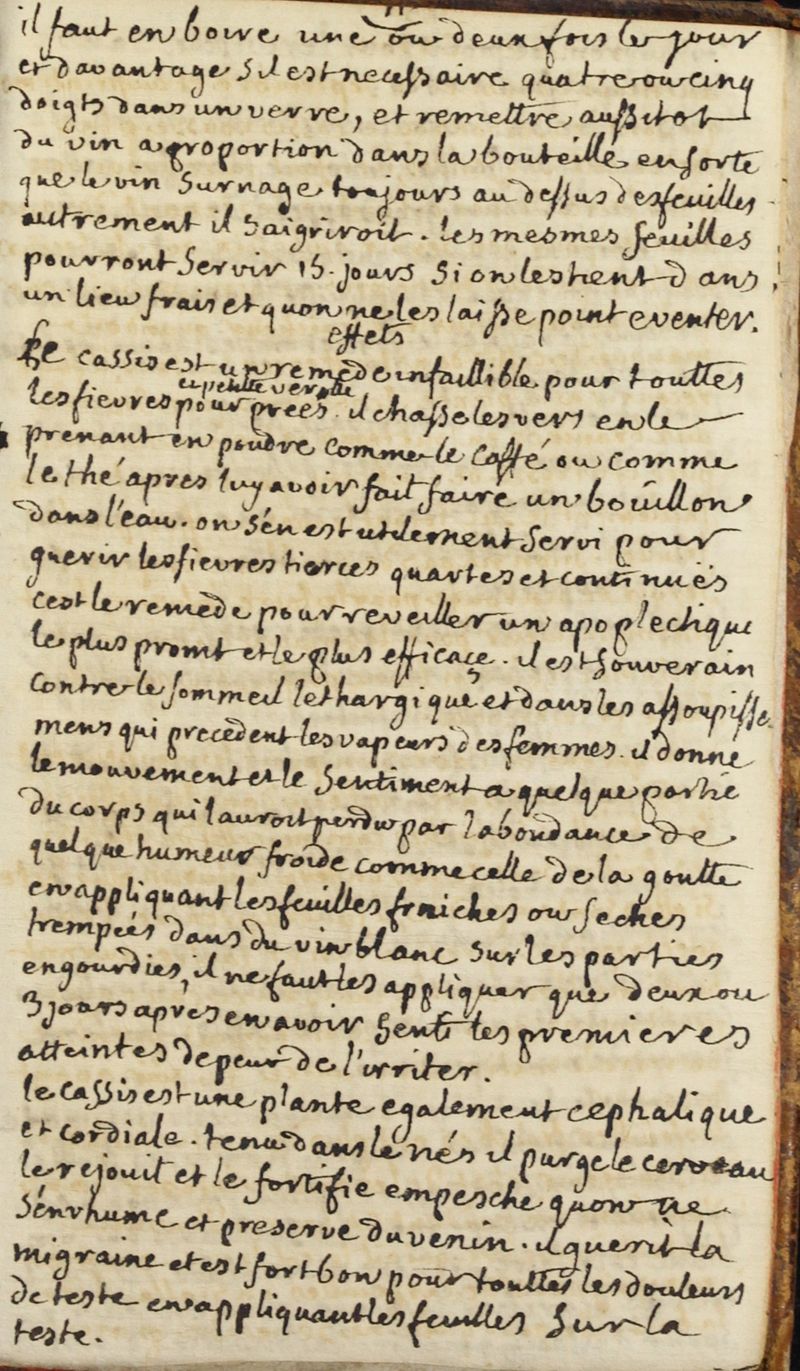 il faut en boire une ou deux fois le jour
et davantage sil est necessaire quatre ou cinq
doigts dans un verre, et remettre aussitot
du vin a proportion dans la bouteille en sorte
que le vin surnage toujours au dessus des feuilles
autrement il saigriroit. les mesmes feuilles
pourront servir 15. jours si on les tient dans
un lieu frais et quon ne les laisse point eventer.
effets
Le cassis est un remede infaillible pour touttes
et petite verolle
les fievres pourprées. il chasse les vers en le
prenant en poudre comme le caffé ou comme
le thé apres luy avoir fait faire un boüillon
dans l'eau. on s'en est utilement servi pour
guerir les fievres tierces quartes et continues
cest le remede pour reveiller un apoplectique
le plus promt et le plus efficace. il est souverain
contre le sommeil lethargique et dans les assoupisse-
mens qui precedent les vapeurs des femmes. il donne
le mouvement et le sentiment a quelque partie
du corps qui lauroit perdu par labondance de
quelque humeur froide comme celle de la goutte
en appliquant les feuilles fraiches ou seches
trempées dans du vin blanc sur les parties
engourdies, il ne faut les appliquer que deux ou
3 jours apres en avoir senti les premieres
atteintes de peur de l'irriter.
le cassis est une plante egalement cephalique
et cordiale. tenu dans le nés il purge le cerveau
le rejouit et le fortifie empesche quon ne
s'enrhume et preserve du venin. il guerit la
migraine et est fort bon pour touttes les douleurs
de teste en appliquant les feuilles sur la
teste.